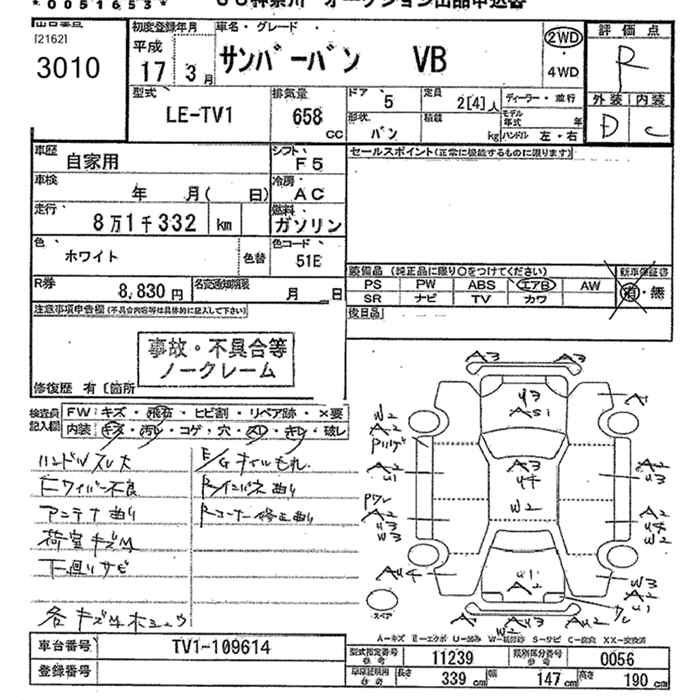 *0051653*
オークション出品申込書
[2162]
3010
初度登録年月
平成
17年 3月
車名・グレード
サンバーバン VB
2WD
・
4WD
評価点
R
外装 内装
D C
型式
LE-TV1
排気量
658 CC
ドア
5
定員
2[4]人
ディーラー・並行
形状
バン
積載
kg
モデル年式 年
ハンドル 左・右
車歴
自家用
シフト
F5
セールスポイント(正常に機能するものに限ります)
車検
年 月( 日)
冷房
AC
走行
8万1千332 km
燃料
ガソリン
色
ホワイト
色替
色コード
51E
装備品 (純正品に限り○をつけてください)
新車保証書
PS PW ABS エアB AW
有・無
SR ナビ TV カワ
R券
8,830円
名変通知期限
月 日
後日品
注意事項申告欄(不具合内容等は具体的に記入して下さい)
事故・不具合等
ノークレーム
修復歴 有〔箇所
検査員
記入欄
FW:キズ・飛石・ヒビ割・リペア跡・×要
内装:キズ・汚レ・コゲ・穴・スレ・キレ・破レ
ハンドルスレ大
Fワイパー不良
アンテナ曲り
荷室キズM
下廻りサビ
E/Gオイルもれ
Rインパネ曲り
Rコーナー修正曲り
A3 A3
U3
A51
A1
W2
A2
A2
U1
A3
U4
W2
A2
U3
W3
A2
U4
W2
AU4
U1
A2
W3
A2
U1
スペア
A-キズ E-エクボ U-凹み W-補修跡 S-サビ C-腐食 XX-交換済
車台番号
TV1-109614
登録番号
型式指定番号
参考
11239
類別区分番号
参考
0056
車庫証明用
参考
長さ 339cm 幅 147cm 高さ 190cm